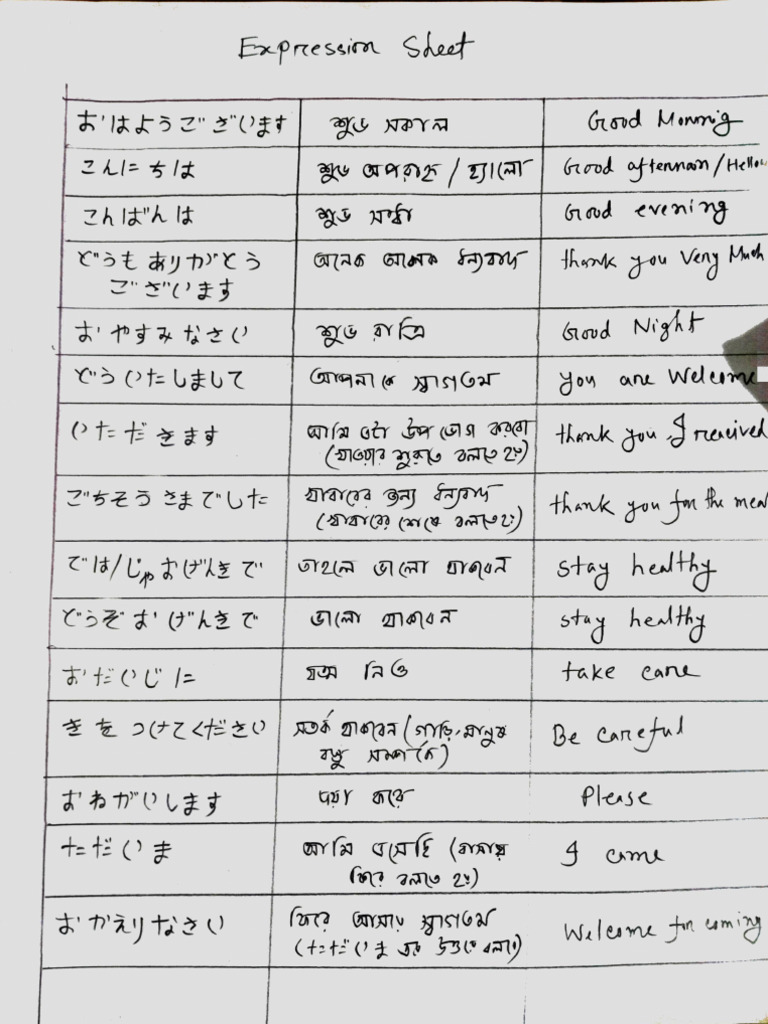 Expression Sheet
おはようございます শুভ সকাল Good Monnig
こんにちは শুভ অপরাহ্ন / হ্যালো Good afternoon/Hello
こんばんは শুভ সন্ধ্যা Good evening
どうもありがとう অনেক অনেক ধন্যবাদ thank you Very Much
ございます
おやすみなさい শুভ রাত্রি Good Night
どういたしまして আপনাকে স্বাগতম you are Welcome
いただきます আমি ওটা উপভোগ করবো thank you, I
(খাওয়ার শুরুতে বলতে হয়)
ごちそうさまでした খাবারের জন্য ধন্যবাদ thank you for the mea
(খাবারের শেষে বলতে হয়)
では/じゃおげんきで তাহলে ভালো থাকবেন stay healthy
どうぞおげんきで ভালো থাকবেন stay healthy
おだいじに যত্ন নিও take care
きをつけてください সতর্ক থাকবেন (গাড়ি, মানুষ Be careful
বস্তু সম্পর্কে)
おねがいします দয়া করে Please
ただいま আমি এসেছি (বাসায় I came
ফিরে বলতে হয়)
おかえりなさい ফিরে আসায় স্বাগতম Welcome for coming
(ただいま এর উত্তরে বলবো)